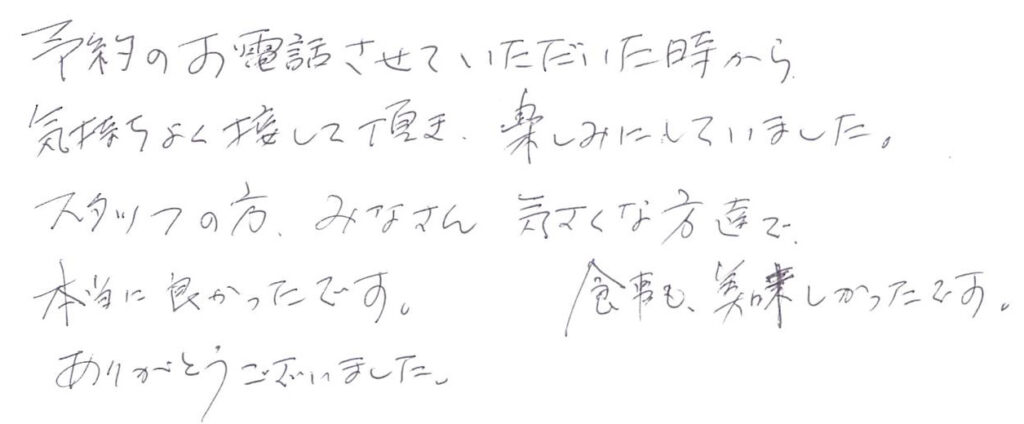 予約のお電話させていただいた時から
気持ちよく接して頂き、楽しみにしていました。
スタッフの方、みなさん 気さくな方達で、
本当に良かったです。 食事も、美味しかったです。
ありがとうございました。